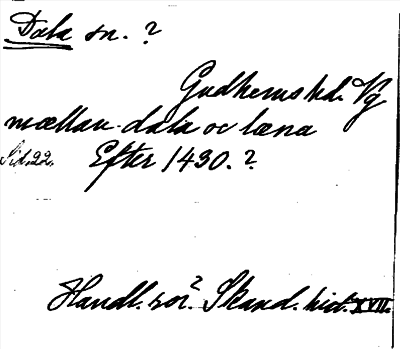 Dala sn. ?
Gudhems hd. Vg
mællan dala oc læna
Sid. 22. Efter 1430. ?
Handl. rör? Skand. hist. XVII.